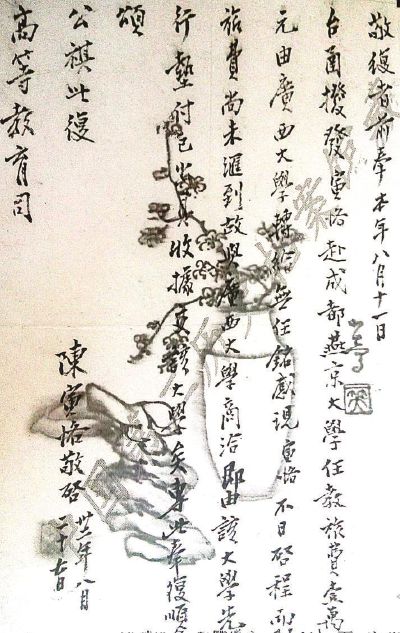 敬復者前奉本年八月十一日
台函撥發寅恪赴成都燕京大學任教旅費壹萬
元由廣西大學轉給無任銘感現寅恪不日啓程
旅費尚未滙到故與廣西大學商洽即由該大學先
行墊付已出具收據交該大學矣專此奉復順
頌
公祺此復
高等教育司
陳寅恪敬啓
卅二年八月
二十七日